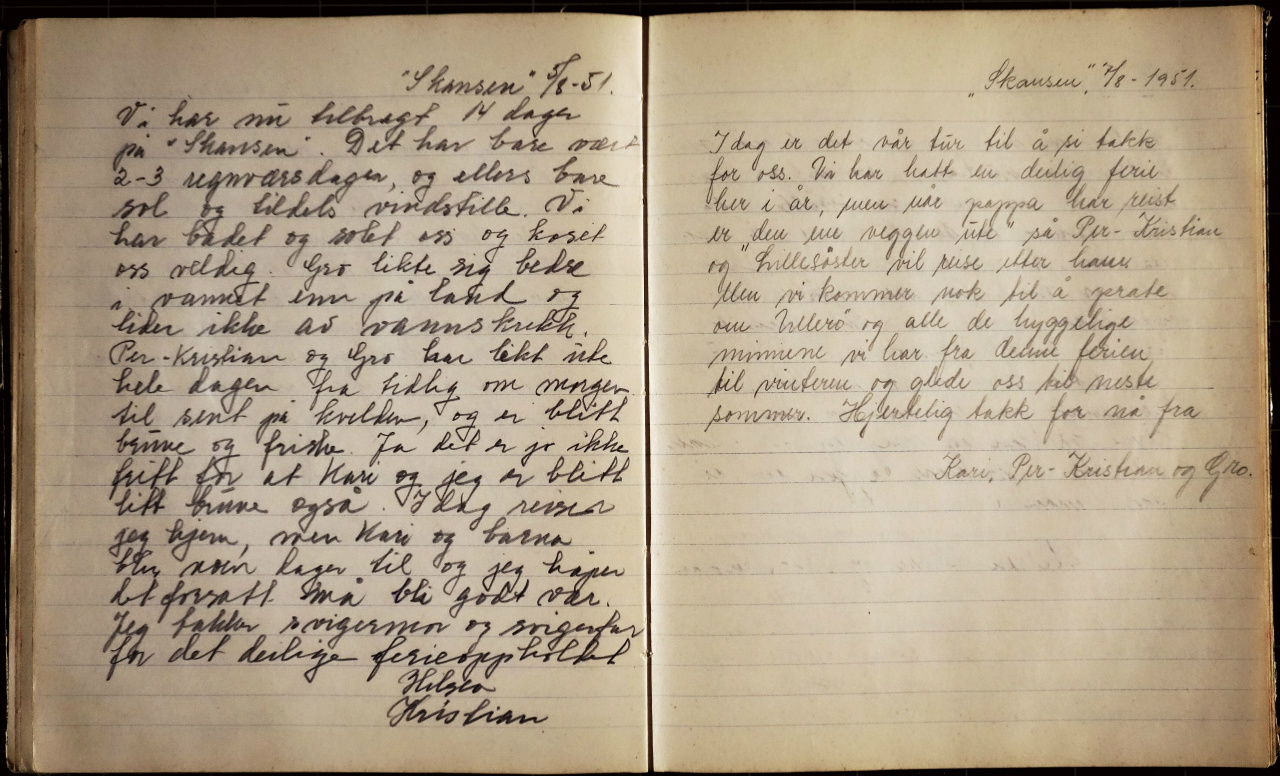 "Skansen" 5/8-51.
Vi har nu tilbragt 14 dager
på "Skansen". Det har bare vært
2-3 regnværsdager, og ellers bare
sol og tildels vindstille. Vi
har badet og solet oss og koset
oss veldig. Gro likte sig bedre
i vannet enn på land og
lider ikke av vannskrekk.
Per-Kristian og Gro har lekt ute
hele dagen fra tidlig om morgen
til sent på kvelden, og er blitt
brune og friske. Ja det er jo ikke
fritt for at Kari og jeg er blitt
litt brune også. Idag reiser
jeg hjem, men Kari og barna
blir noen dager til og jeg håper
det forsatt må bli godt vær.
Jeg takker svigermor og svigerfar
for det deilige ferieoppholdet
Hilsen
Kristian
"Skansen", 7/8-1951.
Idag er det vår tur til å si takk
for oss. Vi har hatt en deilig ferie
her i år, men når pappa har reist
er "den ene veggen ute" så Per-Kristian
og Lillesøster vil reise etter ham.
Men vi kommer nok til å prate
om Ullerø og alle de hyggelige
minnene vi har fra denne ferien
til vinteren og glede oss til neste
sommer. Hjertelig takk for nå fra
Kari, Per-Kristian og Gro.